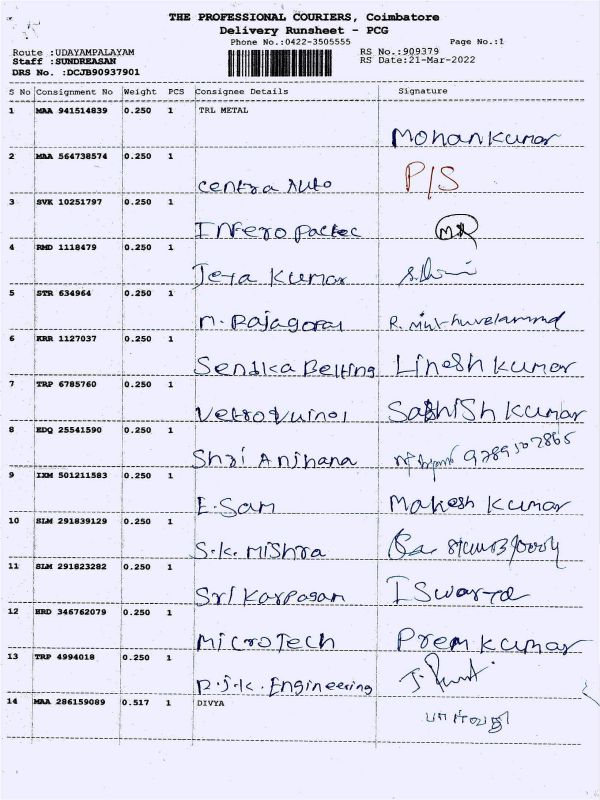 THE PROFESSIONAL COURIERS, Coimbatore
Delivery Runsheet - PCG
Phone No.:0422-3505555 Page No.:1
Route :UDAYAMPALAYAM RS No.:909379
Staff :SUNDREASAN RS Date:21-Mar-2022
DRS No. :DCJB90937901
S No Consignment No Weight PCS Consignee Details Signature
1 MAA 941514839 0.250 1 TRL METAL
Mohan Kumar
2 MAA 564738574 0.250 1
Centra Auto P/S
3 SVK 10251797 0.250 1
Infero Pactec
4 RMD 1118479 0.250 1
Jeya Kumar
5 STR 634964 0.250 1
n. Rajagopal R.
6 KRR 1127037 0.250 1
Sendka Belting Linesh Kumar
7 TRP 6785760 0.250 1
Sathish Kumar
8 EDQ 25541590 0.250 1
Shri Anjhana 9789507865
9 IXM 501211583 0.250 1
E. Sam Makesh Kumar
10 SLM 291839129 0.250 1
S.K. Mishra
11 SLM 291823282 0.250 1
Sri Karpagam ISwarya
12 HRD 346762079 0.250 1
Microtech Prem Kumar
13 TRP 4994018 0.250 1
D.J.K. Engineering
14 MAA 286159089 0.517 1 DIVYA